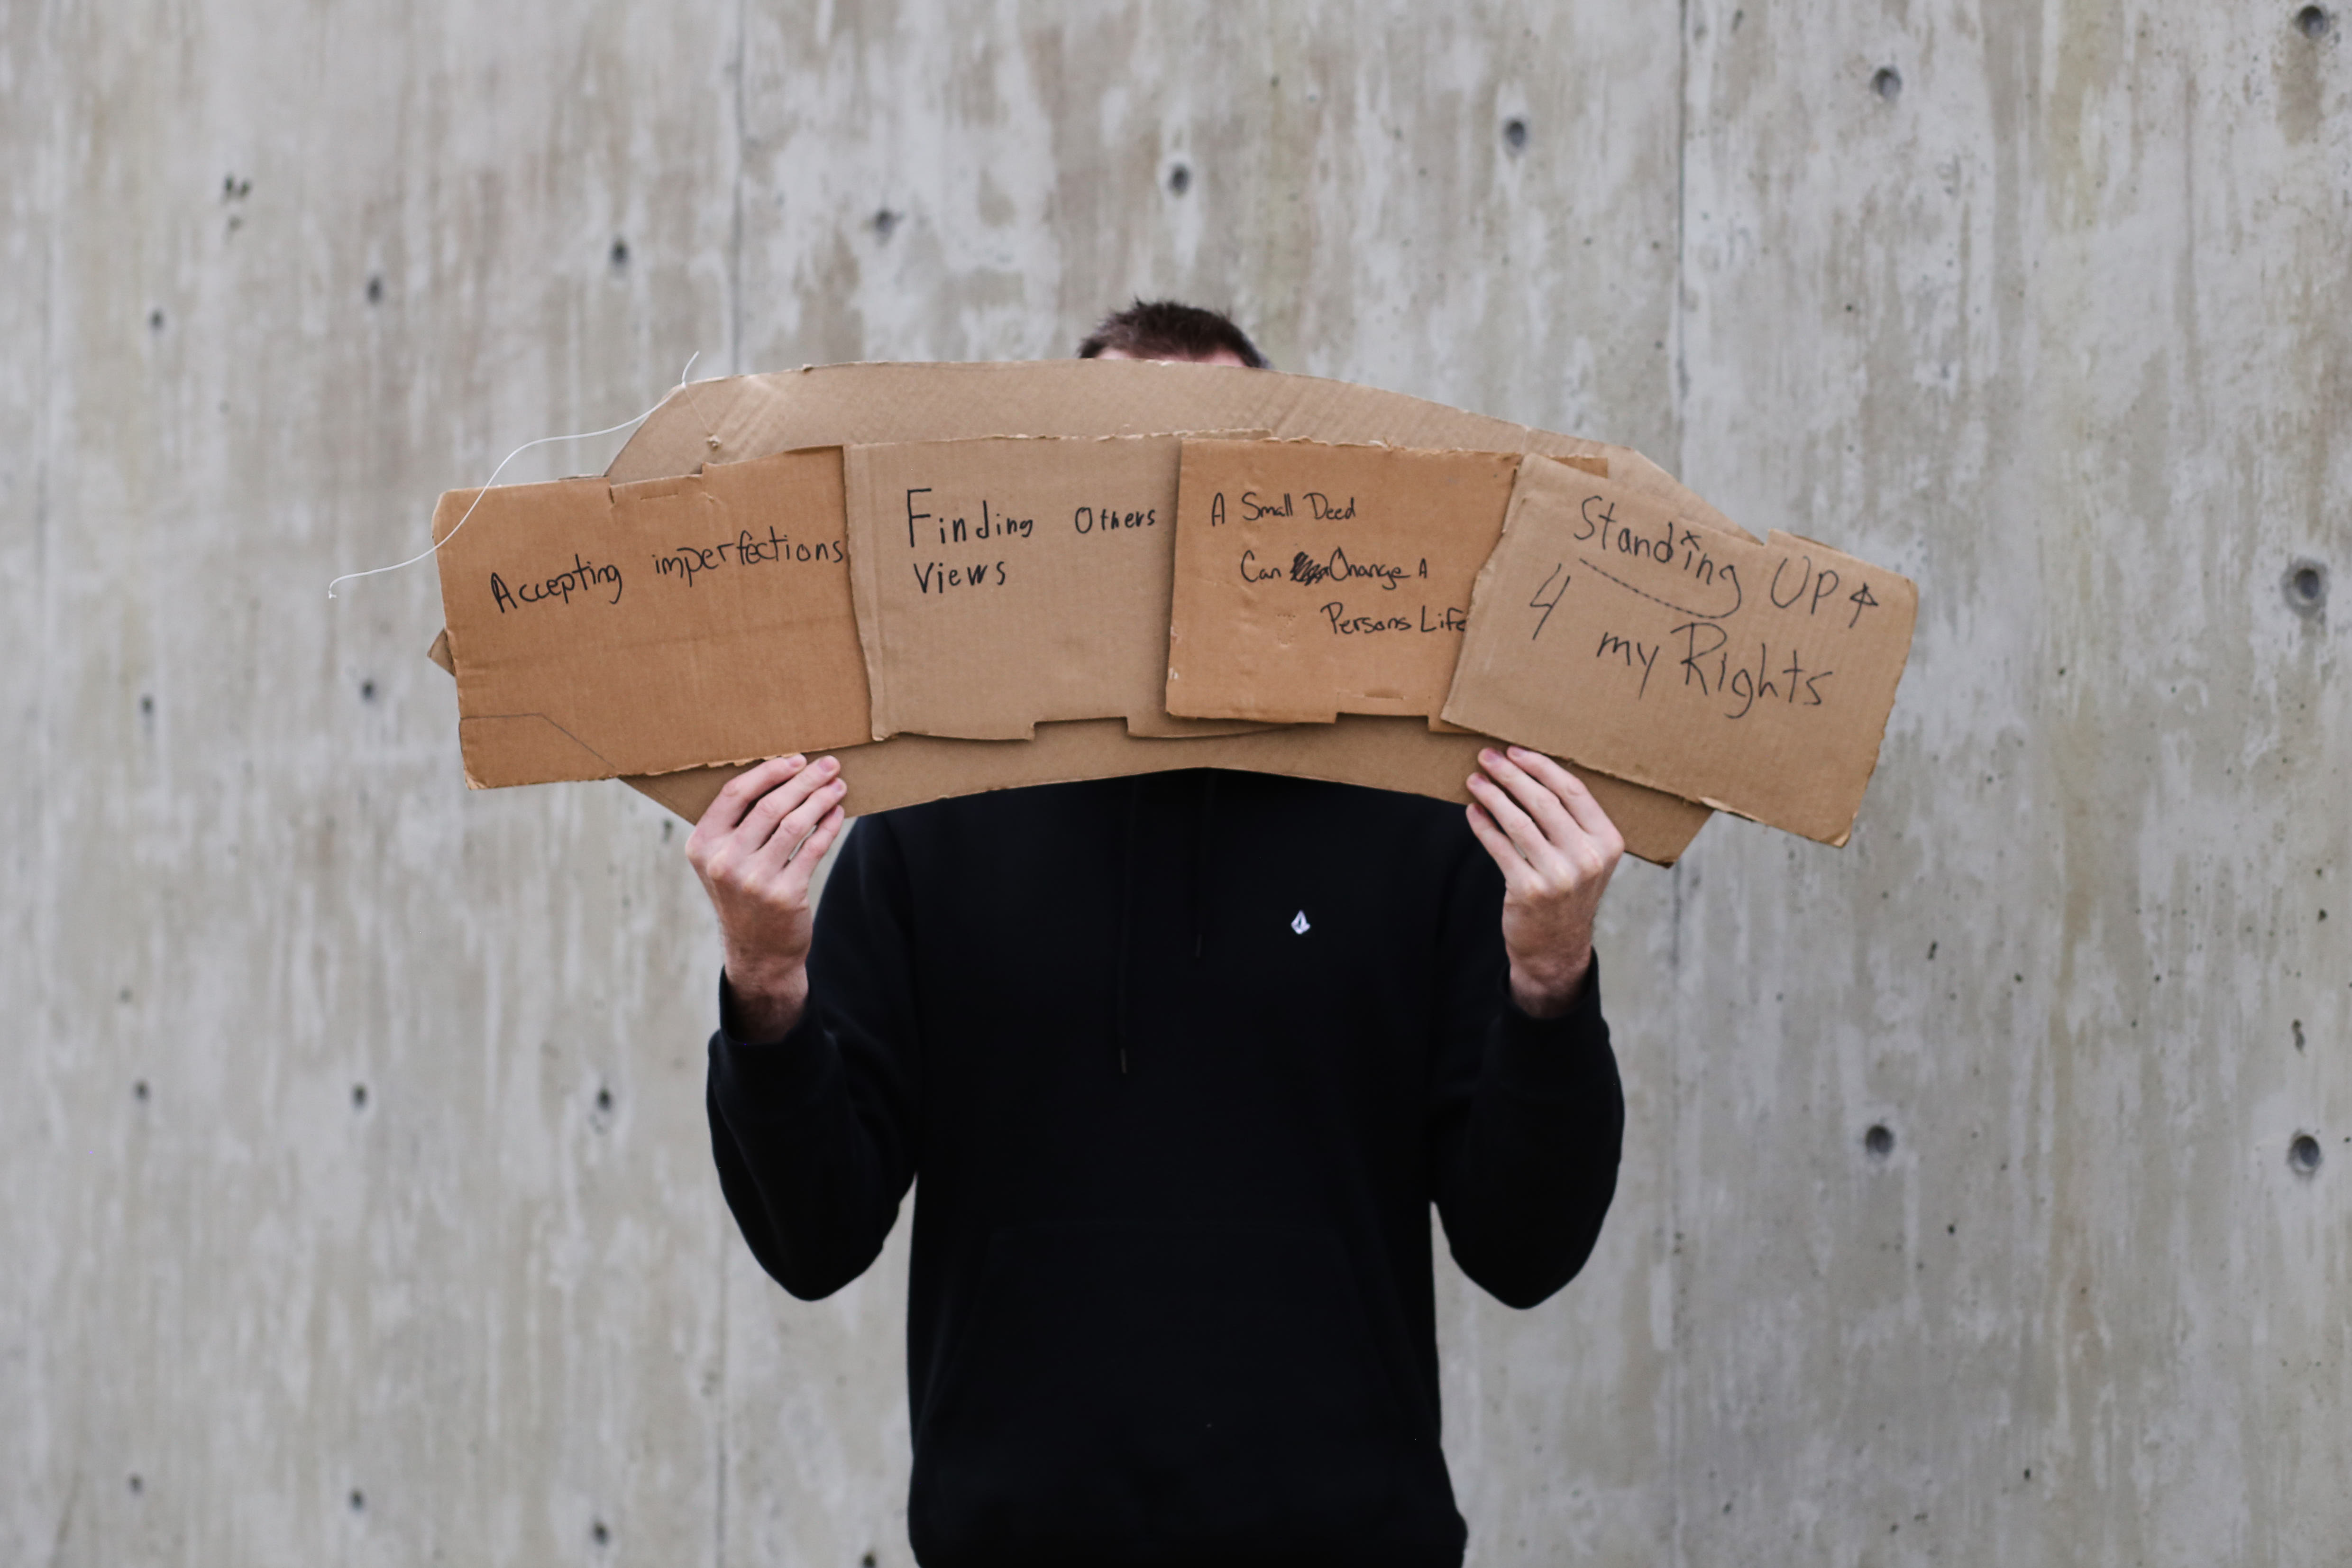 Accepting imperfections
Finding Others
Views
A Small Deed
Can Change A
Persons Life
Standing UP
4 my Rights